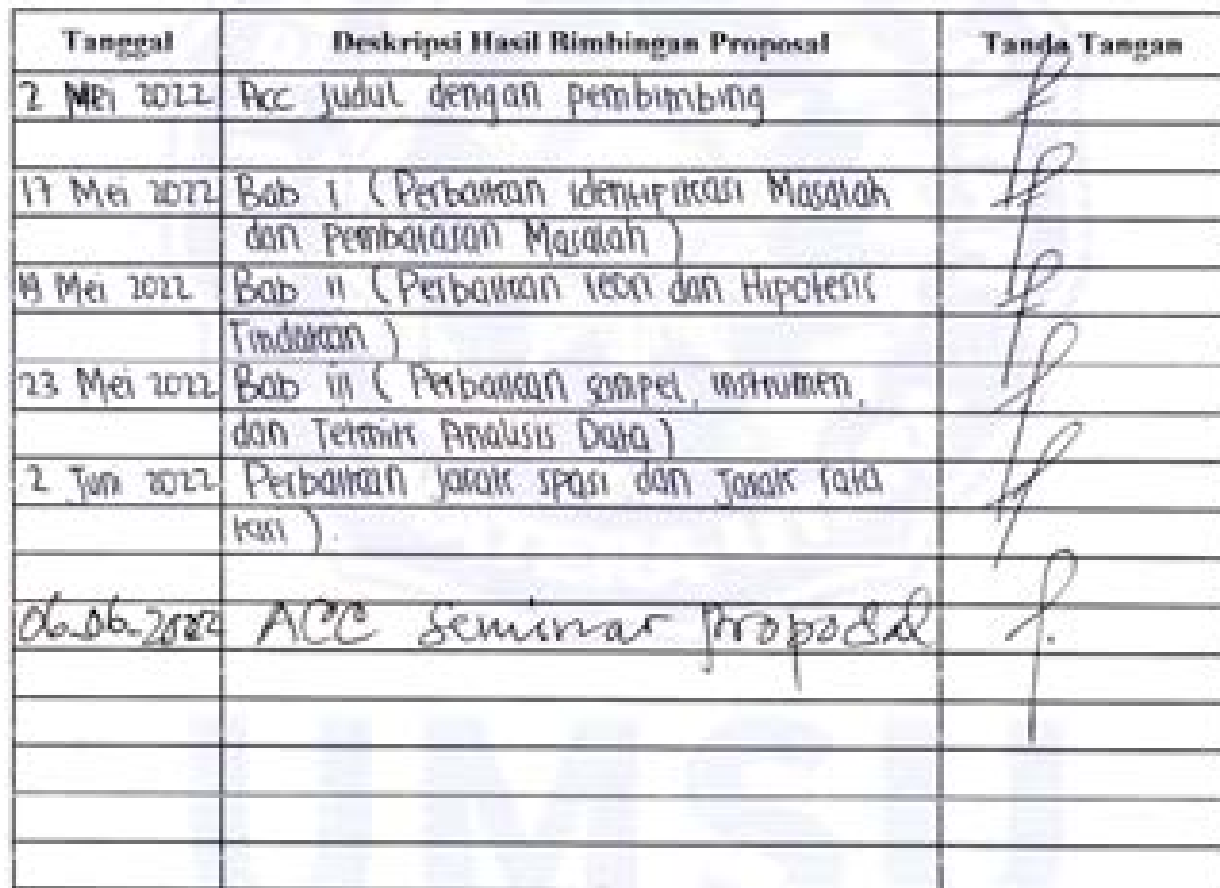 Tanggal Deskripsi Hasil Bimbingan Proposal Tanda Tangan
2 Mei 2022 Acc judul dengan pembimbing
17 Mei 2022 Bab I (Perbaikan identifikasi Masalah
dan pembatasan Masalah)
19 Mei 2022 Bab II (Perbaikan teori dan Hipotesis
Tindakan)
23 Mei 2022 Bab III (Perbaikan sampel, instrumen,
dan Teknik Analisis Data)
2 Juni 2022 Perbaikan jarak spasi dan jarak rata
kiri).
06-06-2022 ACC Seminar Proposal
UMSU